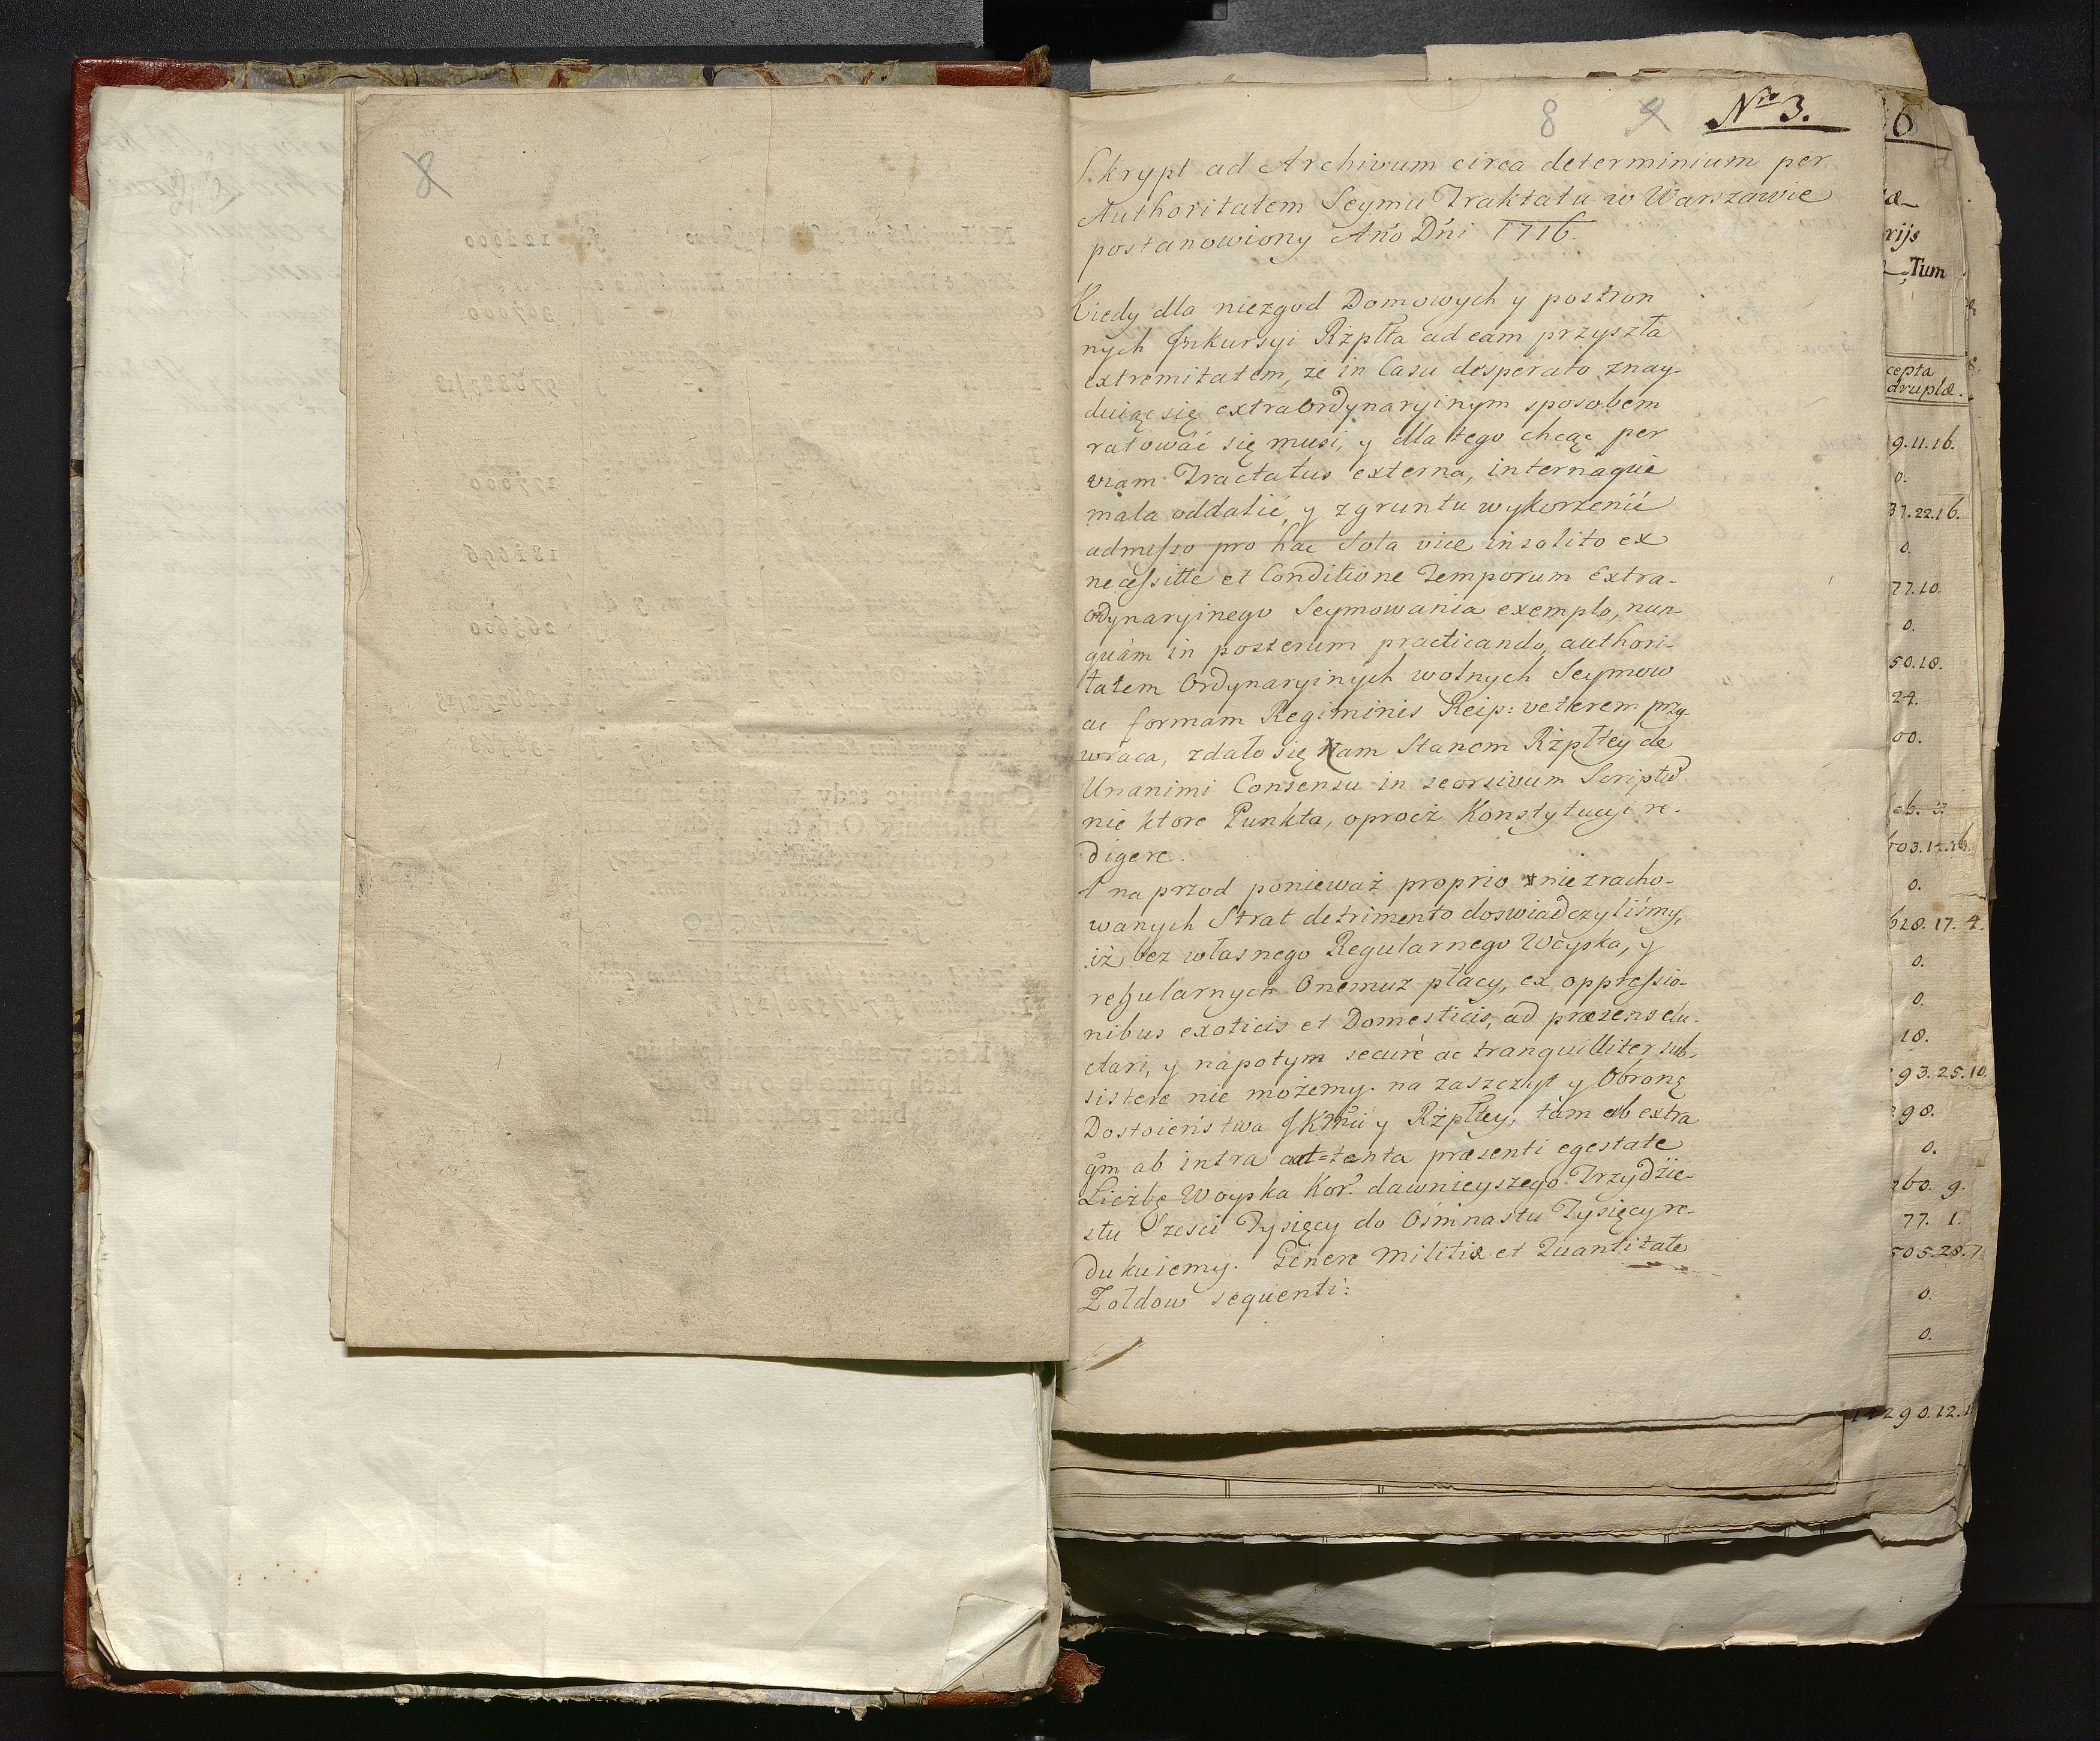 8
8 9 Nro 3.
Skrypt ad Archivum circa determinium per
Authoritatem Seymu Traktatu w Warszawie
postanowiony Año Dñi 1716.
Kiedy dla niezgod Domowych y postron
nych Jnkursyi Rzpłta ad eam przyszła
extremitatem, że in Casu desperato znay-
duiąc się extraOrdynaryinym sposobem
ratować się musi, y dla tego chcąc per
viam Tractatus externa, internaque
mala oddalić, y z gruntu wykorzenić
admisso pro hac Sola vice insolito ex
necessitte et Conditione Temporum Extra-
ordynaryinego Seymowania exemplo, nun-
quàm in posterum practicando, authori-
tatem Ordynaryinych wolnych Seymow
ac formam Regiminis Reip: veterem przy-
wraca, zdało się Nam Stanom Rzpłtey de
Unanimi Consensu in seorsivum Scriptũ
nie ktore Punkta, oprocż Konstytucyi re-
digere.
A na przod ponieważ proprio niezracho-
wanych Strat detrimento doswiadczyliśmy,
iż bez własnego Regularnego Woyska, y
regularnych Onemuż płacy, ex oppressio-
nibus exoticis et Domesticis, ad præsens elu-
ctari, y napotym securè ac tranquilliter sub-
sistere nie możemy. na zaszczyt y Obronę
Dostoieństwa JKMci y Rzpłtey, tàm ab extra
qm ab intra at-tenta præsenti egestate
Liczbę Woyska Kor. dawnieyszego Trzydzie-
stu Szesci Tysięcy do Osminastu Tysięcy re-
dukuiemy. Genere Militiæ et Quantitate
Zołdow sequenti:
6
æ-
rijs
Tum
cepta
druplæ.
9.11.16.
0.
37.22.16.
0.
77.10.
0.
50.18.
24.
00.
0.
0.
0.
18.
93.25.10
98.
0.
60. 9.
77. 1.
505.28.7
0.
0.
290.12.